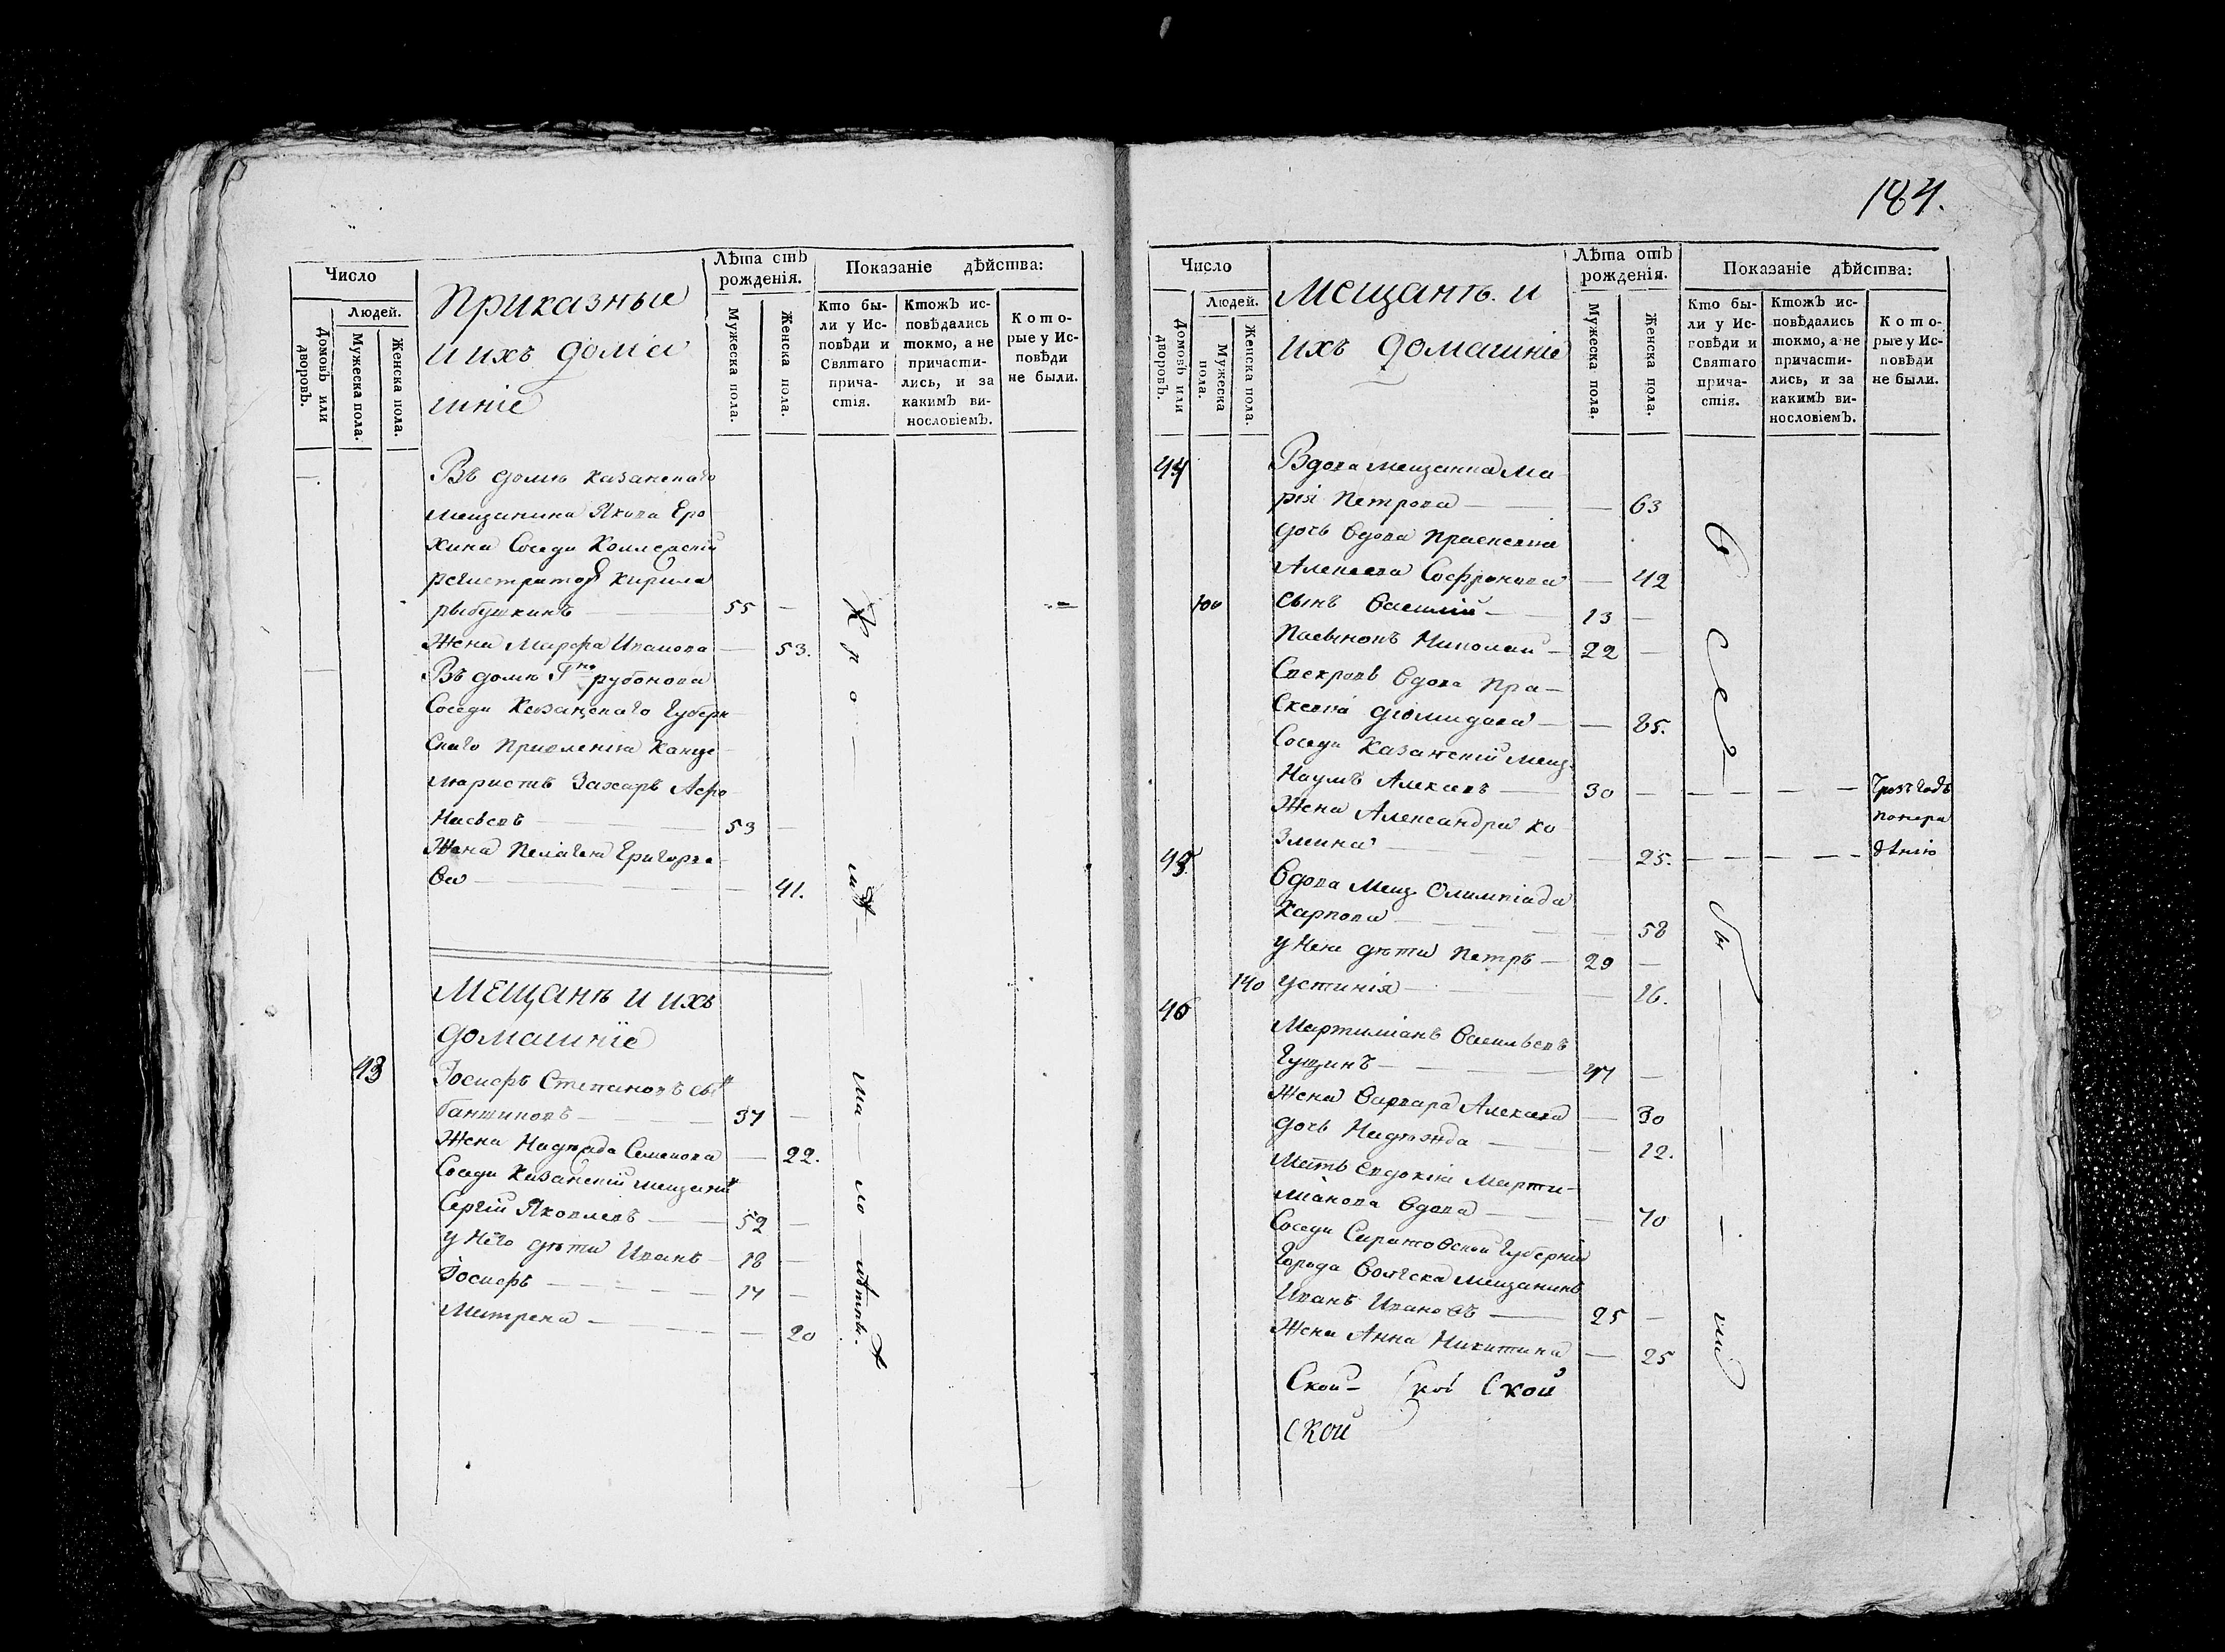 Число
Людей.
Домовъ или дворовъ.
Мужеска пола.
Женска пола.
Приказные
и ихъ дома
шніе
Лѣта отъ рожденія.
Мужеска пола.
Женска пола.
Показаніе дѣйства:
Кто бы-
ли у Ис-
повѣди и
Святаго
прича-
стія.
Ктожъ ис-
повѣдались
токмо, а не
причасти-
лись, и за
какимъ ви-
нословіемъ.
Кото-
рые у Ис-
повѣди
не были.
Въ домѣ казанскаго
мещанина Якова Еро
хина Соседи Коллежскій
регистраторъ Кирила
рыбушкинъ — 55 —
Жена Марфа Иванова — 53.
Въ домѣ Гна рубонова
Соседи Казанскаго Губерн
скаго Правленія Канце
ляристъ Захаръ Афо
насьевъ — 53 —
Жена Пелагея Григорье
ва — 41.
Мещанъ и ихъ
домашніе
43 Іосифъ Степановъ сын
— 37 —
Жена Надежда Семенова — 22.
Соседи Казанскій мещанин
Сергій Яковлевъ — 52 —
у Него дѣти Иванъ — 18 —
Іосифъ — 14 —
Матрена — 20
Кро
мѣ
ма ло лѣтны.
184.
Число
Людей.
Домовъ или дворовъ.
Мужеска пола.
Женска пола.
Мещанъ и
ихъ домашніе
Лѣта отъ рожденія.
Мужеска пола.
Женска пола.
Показаніе дѣйства:
Кто бы-
ли у Ис-
повѣди и
Святаго
прича-
стія.
Ктожъ ис-
повѣдались
токмо, а не
причасти-
лись, и за
какимъ ви-
нословіемъ.
Кото-
рые у Ис-
повѣди
не были.
44 Вдова мещанка Ма
рія Петрова — 63
дочь вдова Праскевіа
Алексеева Софронова — 42
100 сынъ Василій — 13 —
Пасынокъ Николай — 22 —
Свекровь вдова Пра—
скевіа Діомидова — 85.
Соседи Казанскій мещ.
Наумъ Алексевъ — 30 — Чрезъ годъ
Жена Александра Ко понера
змина — 25. — дѣнію
45 Вдова Мещ Олимпіада
Карпова — 58
у Нея дѣти Петръ — 29 —
140 Устинія — 26.
46 Мартиміанъ Васильевъ
Гущинъ — 47 —
Жена Варвара Алексева — 30
дочь Надежда — 12.
Мать Евдокіа Марти—
міанова вдова — 70
Соседи Саратовской Губерніи
Города Волгска мещанинъ
Иванъ Ивановъ — 25 —
Жена Анна Никитина — 25
Ской— Ской Ской
Ской